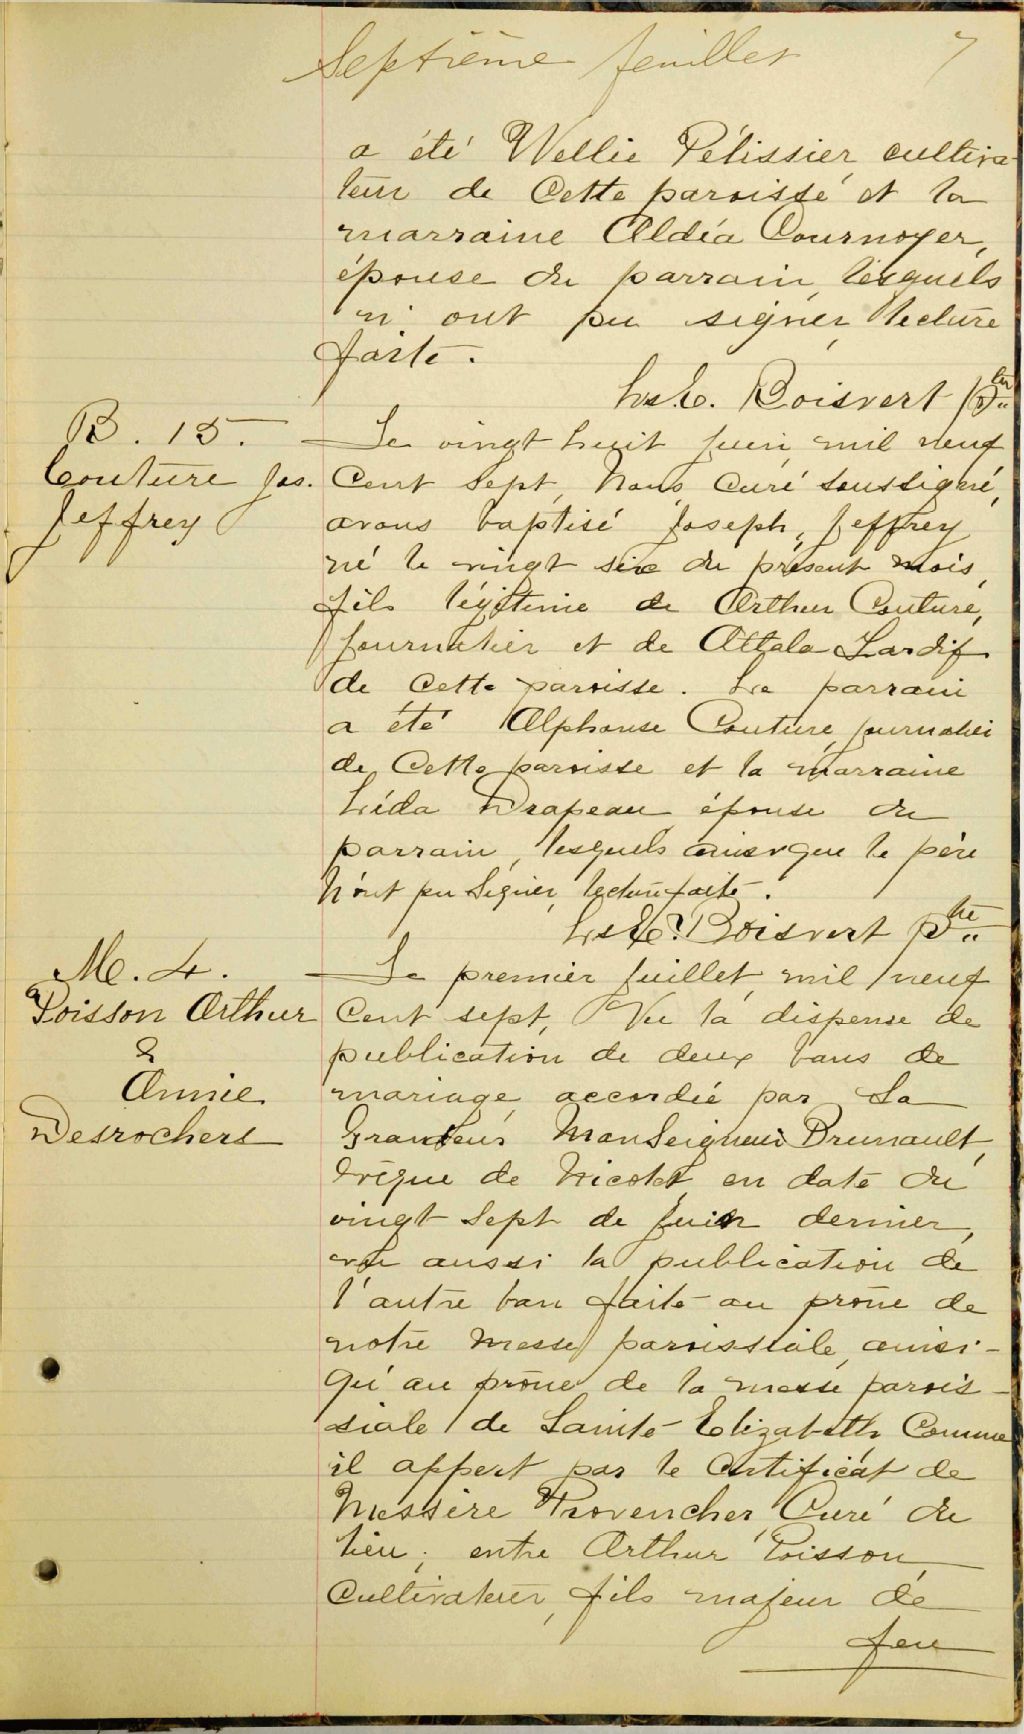 Septième feuillet 7
a été Wellie Pélissier cultiva-
teur de Cette paroisse et la
marraine Aldéa Cournoyer,
épouse du parrain, lesquels
n'ont pu signer, lecture
faite.
Ls. E. Boisvert Ptre
B. 15.
Couture Jos.
Jeffrey
Le vingt huit juin, mil neuf
Cent Sept, Nous, Curé soussigné,
avons baptisé Joseph, Jeffrey
né le vingt six du présent mois,
fils légitime de Arthur Couture,
journalier et de Attala Lardif
de Cette paroisse. Le parrain
a été Alphonse Couture, journalier
de Cette paroisse et la marraine
Léda Drapeau épouse du
parrain, lesquels ainsi que le père
N'ont pu Signer, lecture faite.
Ls. E. Boisvert Ptre
M. 4.
Poisson Arthur
&
Annie
Desrochers
Le premier Juillet, mil neuf
Cent sept, Vu la dispense de
publication de deux bans de
mariage accordée par Sa
Grandeur Monseigneur Brunault,
Évêque de Nicolet, en date du
vingt Sept de juin dernier,
vu aussi la publication de
l'autre ban faite au prône de
notre Messe paroissiale, ainsi-
qu'au prône de la messe parois-
siale de Sainte-Elizabeth, Comme
il appert par le Certificat de
Messire Provencher, Curé du
lieu; entre Arthur Poisson,
Cultivateur, fils majeur de
feu